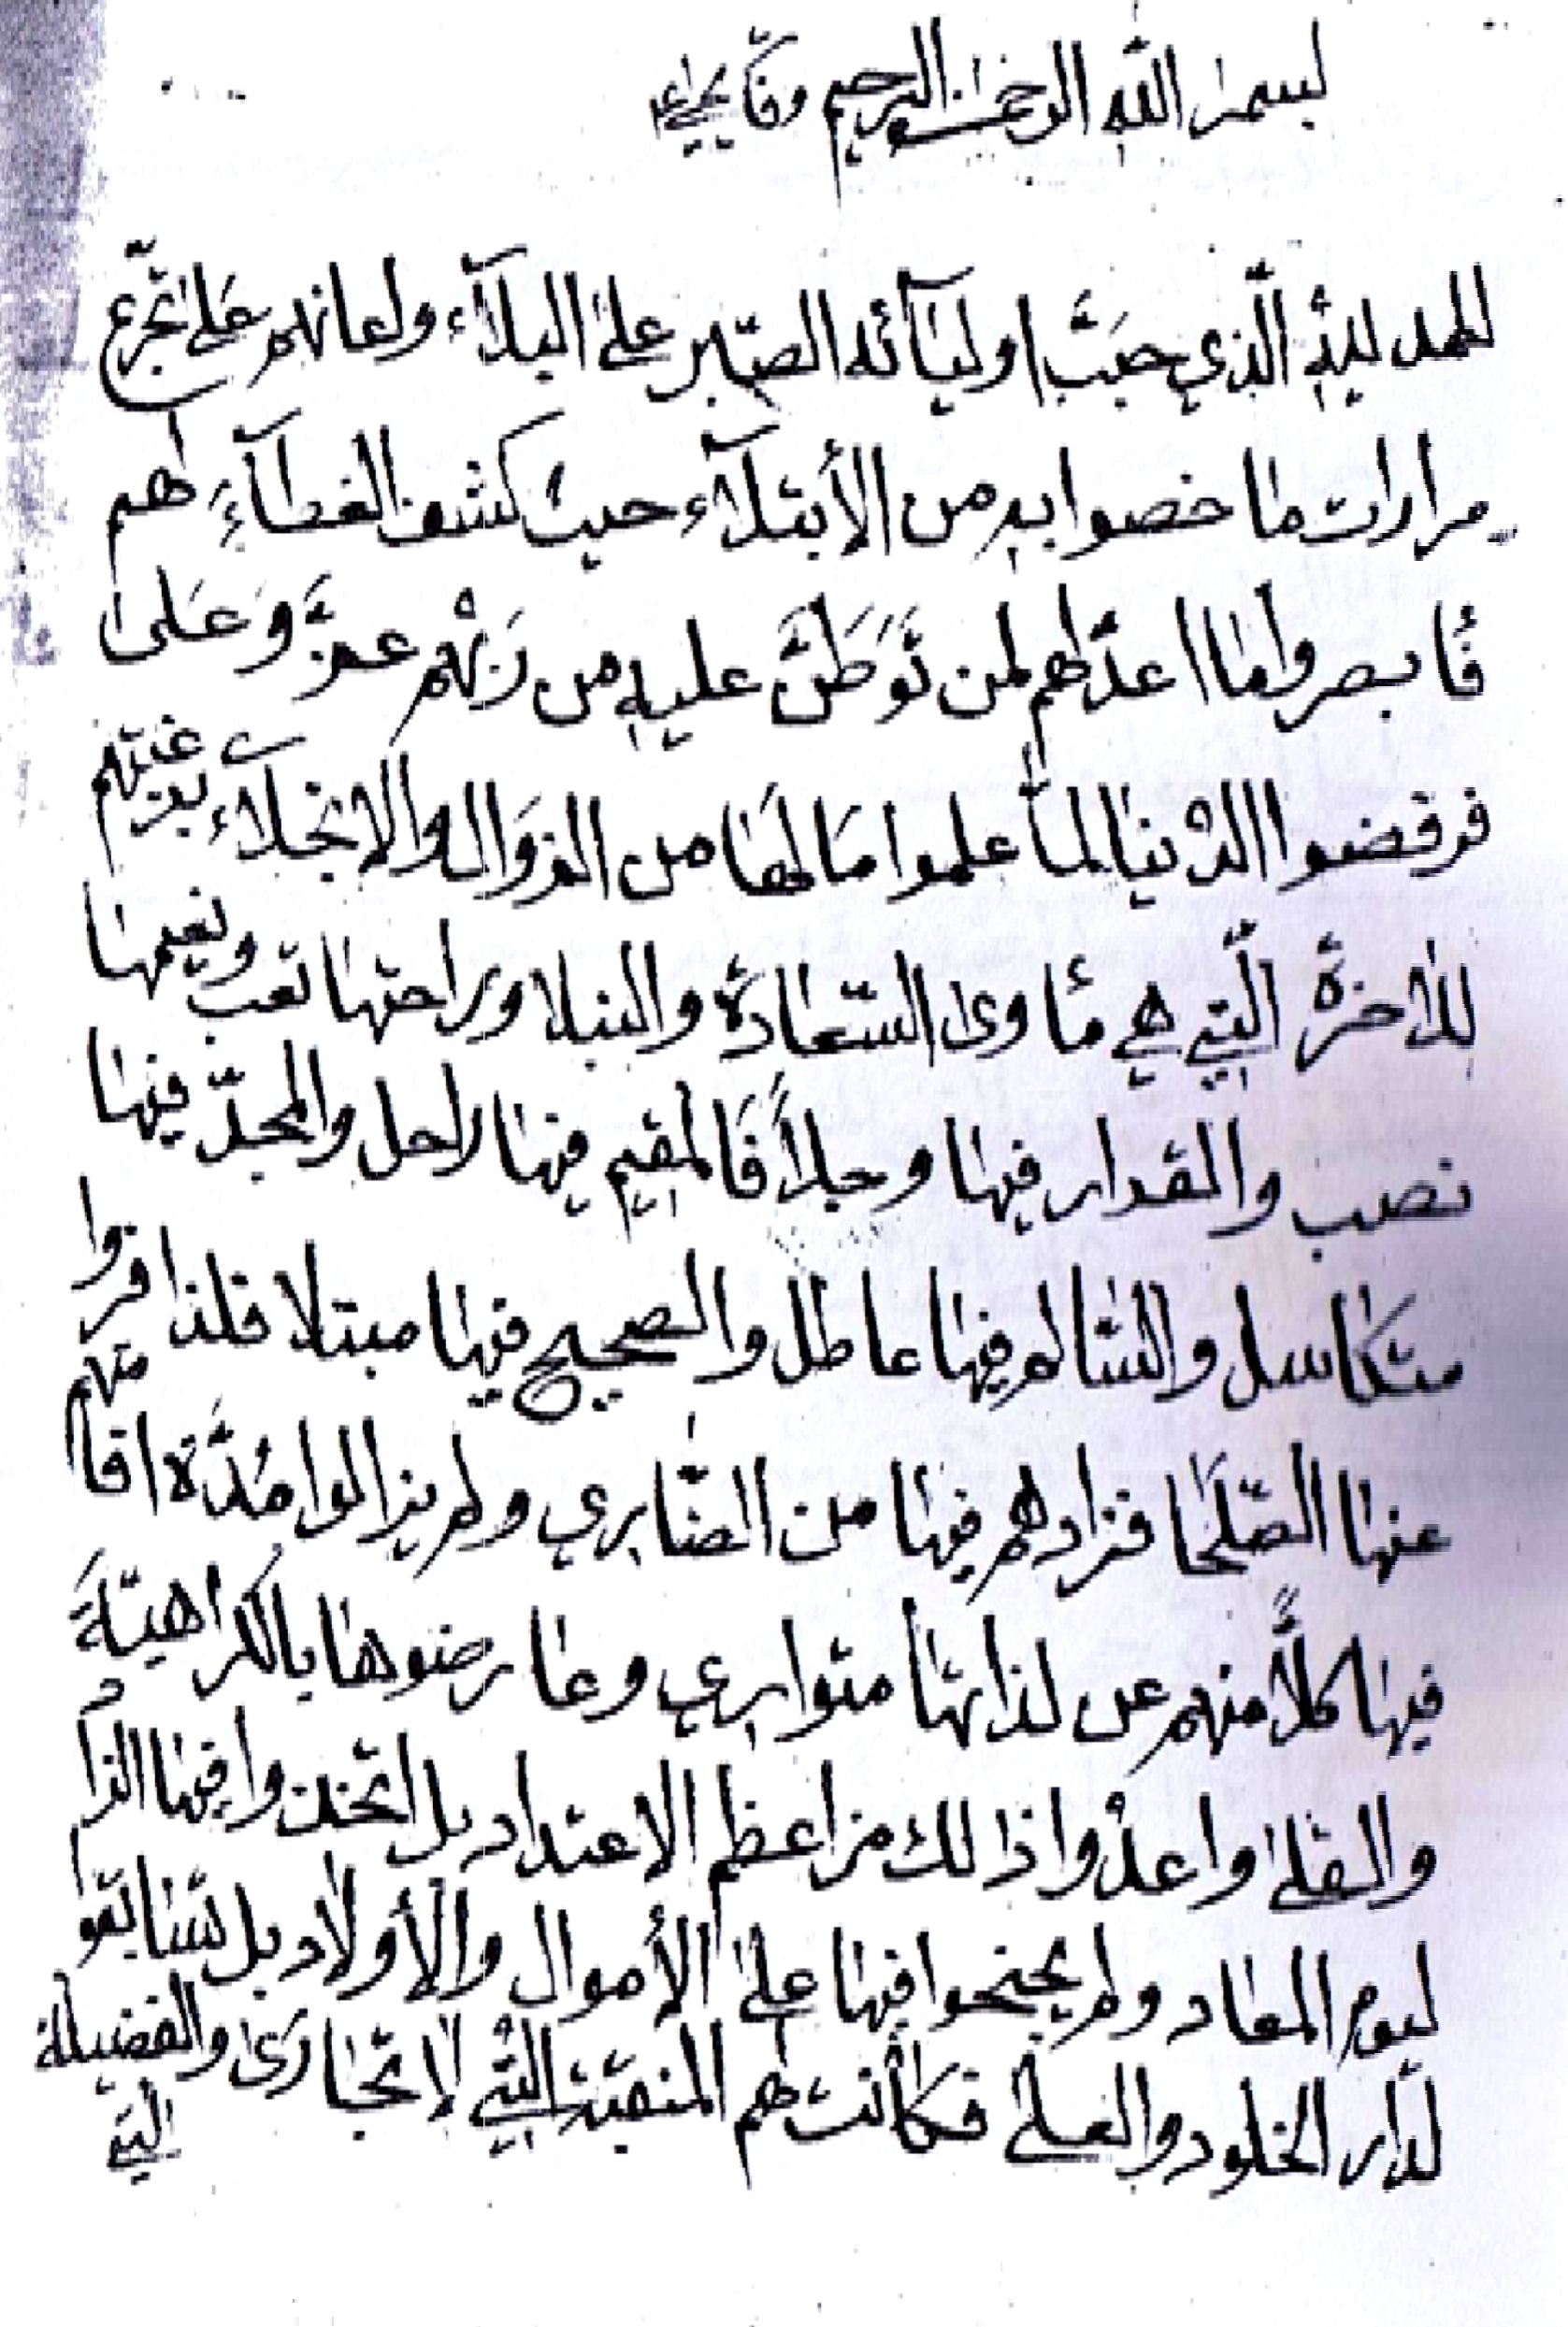 بسم الله الرحمن الرحيم
الحمد لله الّذي حبَّبَ اوليآئه الصّبر على البلآء واعانهم على تجرّع
مرارات ما خصوا به من الأبتلآء حيث كشف الغطآءِ لهم
فأبصروا ما اعدّ لهم لمن تَوَطَّنَ عليه من رَبّهم عزَّ وَعَلى
فرفضوا الدّنيا لما علموا مَا لهَا من الزوَال والانجلآء برغبتهم
للاخرة الّتي هي مأوى السّعادة والنبلا وراحتها تعب ونعيمها
نصب والقرار فيها وجلاً فَالمقيم فيها راحل والمجدّ فيها
متكاسل والسّالم فيها عاطل والصحيح فيها مبتلا فلذا فرّوا
عنها الصّلحَا فزادهم فيها من الضّاري ولم يزالوا مُدَّة اقامتهم
فيها كلاًّ منهم عن لذاتها متواري وعارضوها بالكراهيّةَ
والقلى واعدّوا ذلك من اعظم الاعتداد بل اتخذوا فيها الزاد
ليوم المعاد ولم يجنحوا فيها على الأموال والأولاد بل تسابقوا
لدار الخلود والعلى فكانت لهم المنقبة الّتي لا تجارَى والفضيلة
الّتي